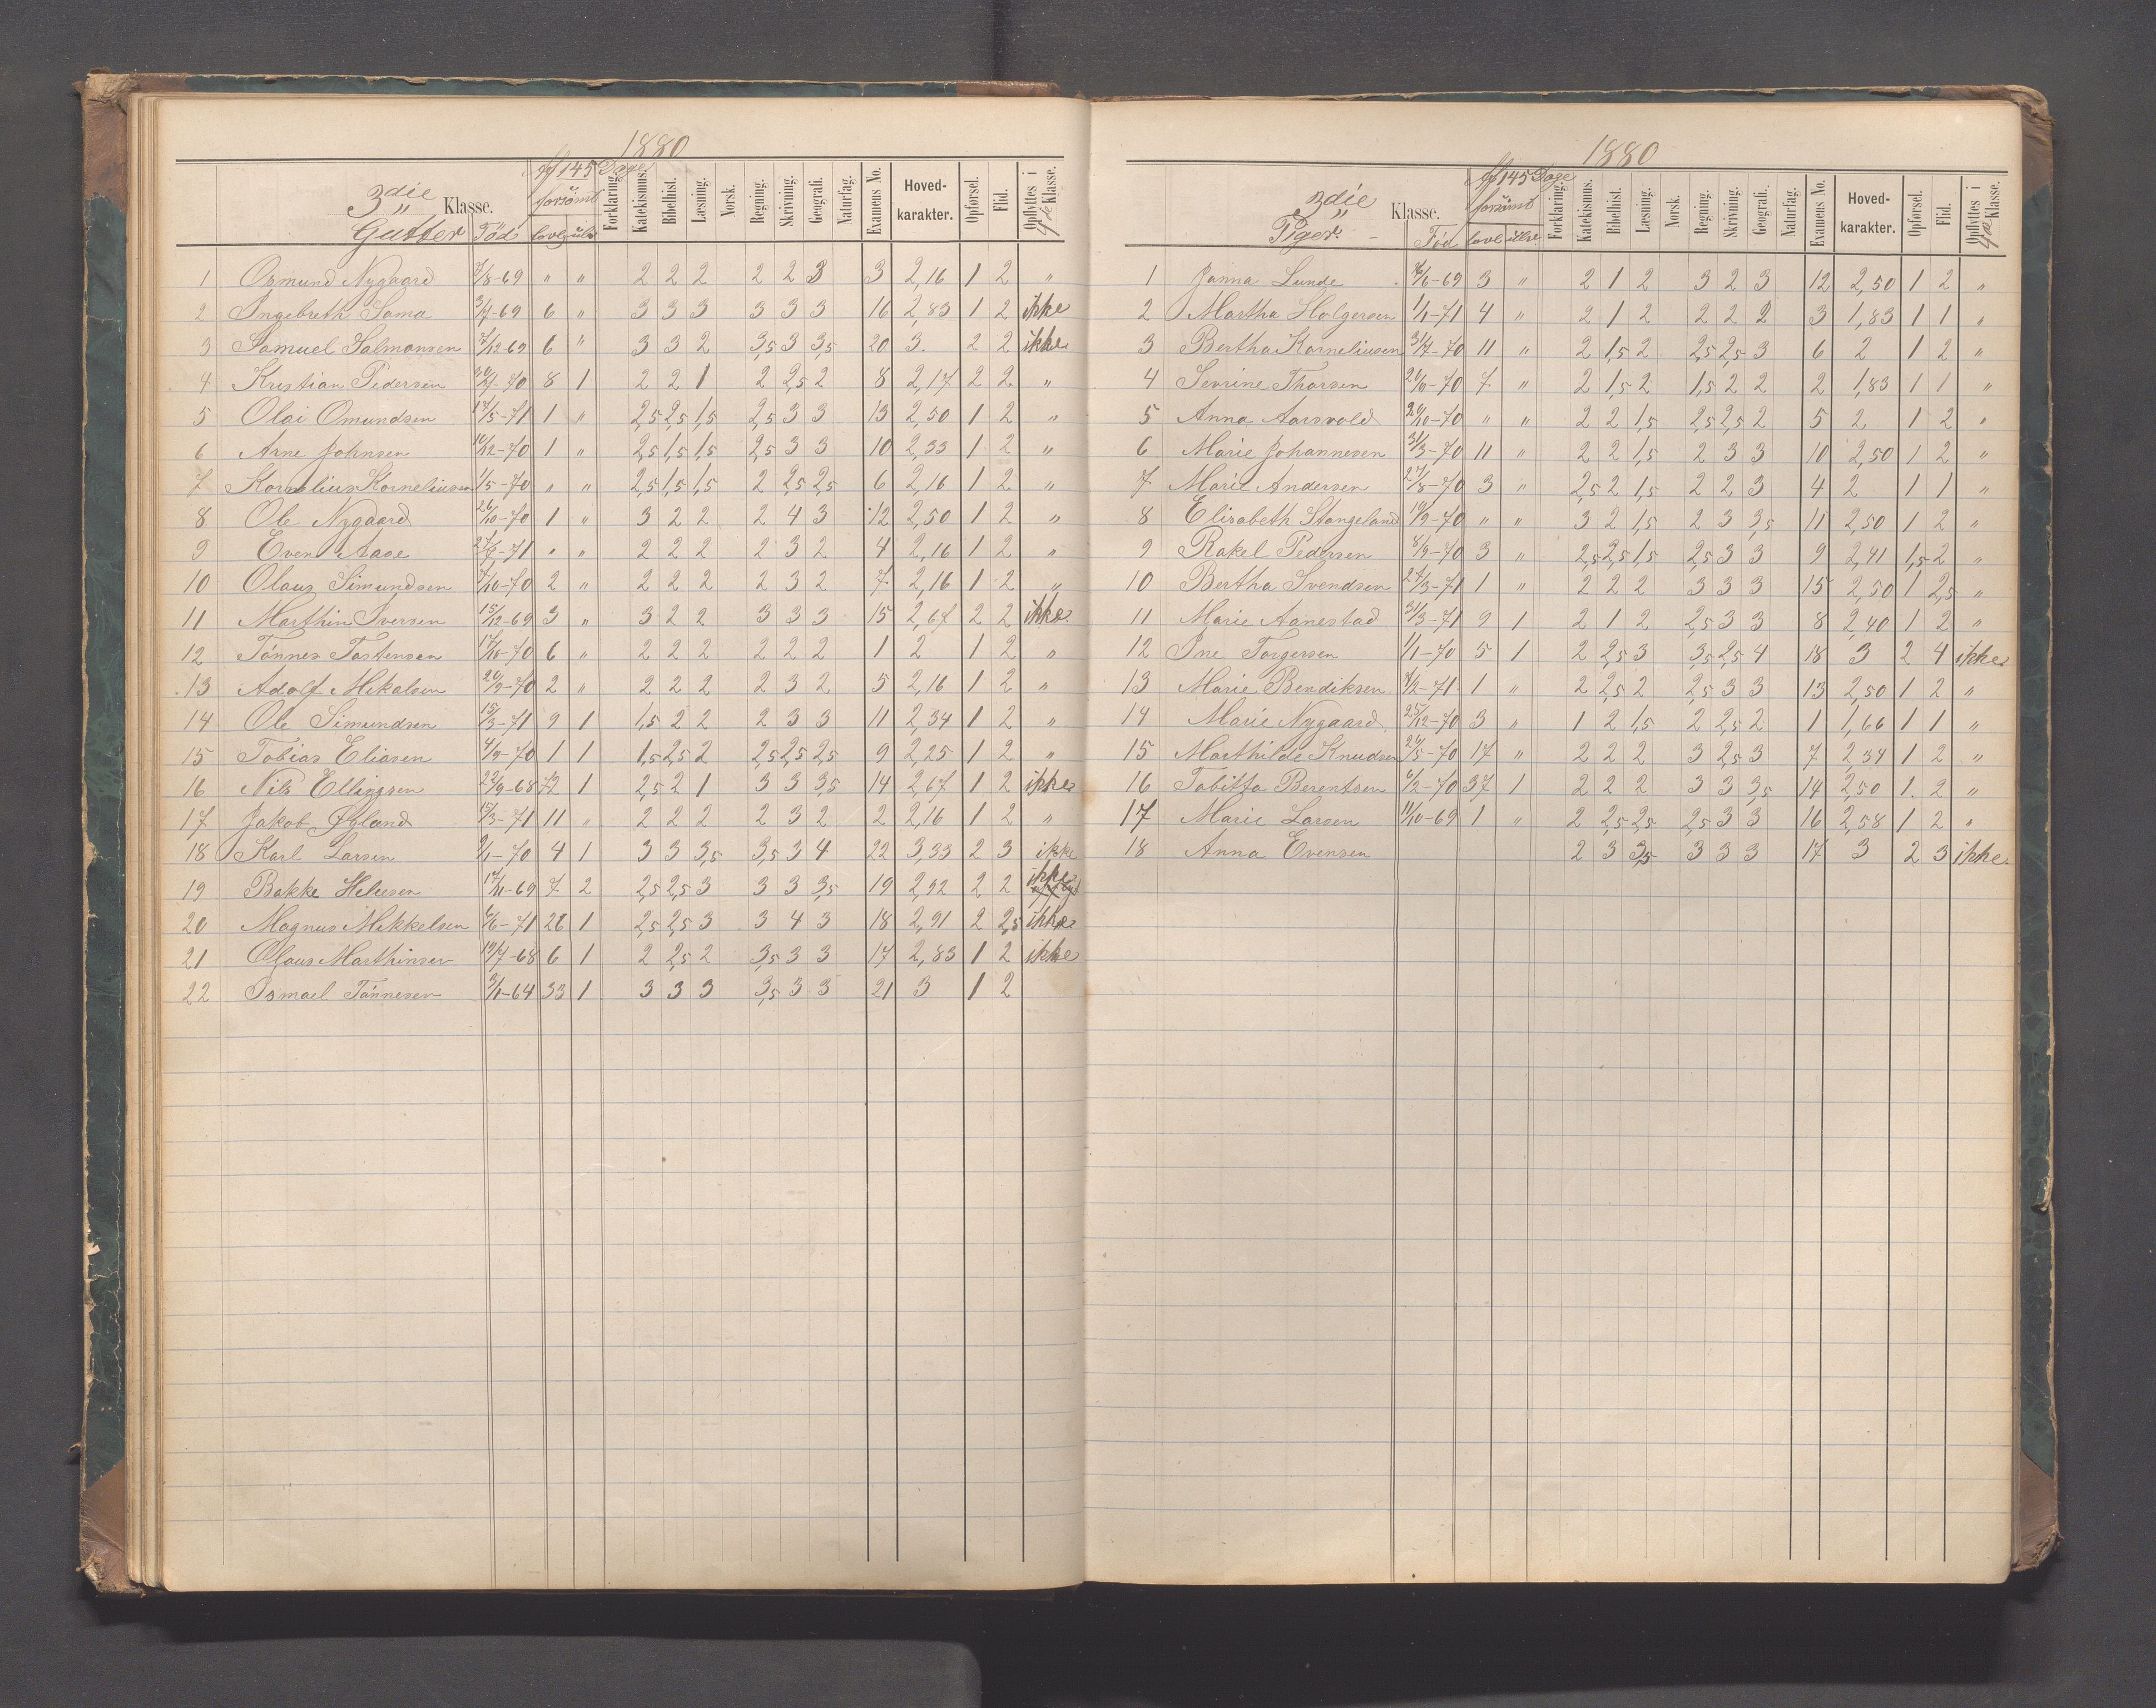 1880
3die Klasse. Af 145 Dage forsömt Forklaring. Katekismus. Bibelhist. Læsning. Norsk. Regning. Skrivning. Geografi. Naturfag. Examens No. Hoved-karakter. Opførsel. Flid. Opflyttes i 4de Klasse.
Gutter Född lovl. ulo
1 Osmund Nygaard 7/8-69 " " 2 2 2 2 2 3 3 2,16 1 2 "
2 Ingebreth Soma 3/7-69 6 " 3 3 3 3 3 3 16 2,83 1 2 ikke
3 Samuel Salmonsen 7/12-69 6 " 3 3 2 3,5 3 3,5 20 3. 2 2 ikke
4 Kristian Pedersen -70 8 1 2 2 1 2 2,5 2 8 2,17 2 2 "
5 Olai Omundsen 17/5-71 1 " 2,5 2,5 1,5 2,5 3 3 13 2,50 1 2 "
6 Arne Johnsen 10/12-70 1 " 2,5 1,5 1,5 2,5 3 3 10 2,33 1 2 "
7 Kornelius Korneliussen 1/5-70 " " 2,5 1,5 1,5 2 2,5 2,5 6 2,16 1 2 "
8 Ole Nygaard 26/10-70 1 " 3 2 2 2 4 3 12 2,50 1 2 "
9 Even Aase -71 " " 2 2 2 2 3 2 4 2,16 1 2 "
10 Olaus Simundsen 7/10-70 2 " 2 2 2 2 3 2 7 2,16 1 2 "
11 Marthin Iversen 15/12-69 3 " 3 2 2 3 3 3 15 2,67 2 2 ikke
12 Tönnes Tostensen 17/10-70 6 " 2 2 2 2 2 2 1 2 1 2 "
13 Adolf Mikalsen 20/9-70 2 " 2 2 2 2 3 2 5 2,16 1 2 "
14 Ole Simundsen 15/3-71 9 1 1,5 2 2 2 3 3 11 2,34 1 2 "
15 Tobias Eliasen 4/9-70 1 1 1,5 2,5 2 2,5 2,5 2,5 9 2,25 1 2 "
16 Nils Ellingsen 22/9-68 72 1 2,5 2 1 3 3 3,5 14 2,67 1 2 ikke
17 Jakob Øgland 15/3-71 11 " 2 2 2 2 3 2 2 2,16 1 2 "
18 Karl Larsen 9/1-70 4 1 3 3 3,5 3,5 3 4 22 3,33 2 3 ikke
19 Bakke Helliesen 17/11-69 7 2 2,5 2,5 3 3 3 3,5 19 2,92 2 2 ikke
20 Magnus Mikkelsen 6/6-71 26 1 2,5 2,5 3 3 4 3 18 2,91 2 2,5 ikke
21 Olaus Marthinsen 19/7-68 6 1 2 2,5 2 3,5 3 3 17 2,83 1 2 ikke
22 Ismael Tönnesen 3/1-64 33 1 3 3 3 3,5 3 3 21 3 1 2
1880
3die Klasse. Af 145 Dage forsömt Forklaring. Katekismus. Bibelhist. Læsning. Norsk. Regning. Skrivning. Geografi. Naturfag. Examens No. Hoved-karakter. Opførsel. Flid. Opflyttes i 4de Klasse.
Piger. Född lovl
1 Janna Lunde /6-69 3 " 2 1 2 3 2 3 12 2,50 1 2 "
2 Martha Holgersen 1/1-71 4 " 2 1 2 2 2 2 3 1,83 1 1 "
3 Bertha Korneliusen 31/7-70 11 " 2 1,5 2 2,5 2,5 3 6 2 1 2 "
4 Sevrine Thorsen -70 7 " 2 1,5 2 1,5 2 2 2 1,83 1 1 "
5 Anna Aarsvold 20/10-70 " " 2 2 1,5 2,5 2,5 2 5 2 1 2 "
6 Marie Johannesen 31/3-70 11 " 2 2 1,5 2 3 3 10 2,50 1 2 "
7 Marie Andersen 27/8-70 3 " 2,5 2 1,5 2 2 3 4 2 1 1 "
8 Elisabeth Stangeland 19/9-70 " " 3 2 1,5 2 3 3,5 11 2,50 1 2 "
9 Rakel Pedersen 8/9-70 3 " 2,5 2,5 1,5 2,5 3 3 9 2,41 1,5 2 "
10 Bertha Svendsen 27/3-71 1 " 2 2 2 3 3 3 15 2,50 1 2,5 "
11 Marie Aanestad 31/3-71 9 1 2 1 2 2,5 3 3 8 2,40 1 2 "
12 Ine Torgersen 1/1-70 5 1 2 2,5 3 3,5 2,5 4 18 3 2 4 ikke
13 Marie Bendiksen 7/2-71 1 " 2 2,5 2 2,5 3 3 13 2,50 1 2 "
14 Marie Nygaard 25/12-70 3 " 1 2 1,5 2 2,5 2 1 1,66 1 1 "
15 Marthilde Knudsen 24/5-70 17 " 2 2 2 3 2,5 3 7 2,34 1 2 "
16 Tobitta Berentsen 6/2-70 37 1 2 2 2 3 3 3,5 14 2,50 1 2 "
17 Marie Larsen 11/10-69 1 " 2 2,5 2,5 2,5 3 3 16 2,58 1 2 "
18 Anna Evensen 2 3 3,5 3 3 3 17 3 2 3 ikke